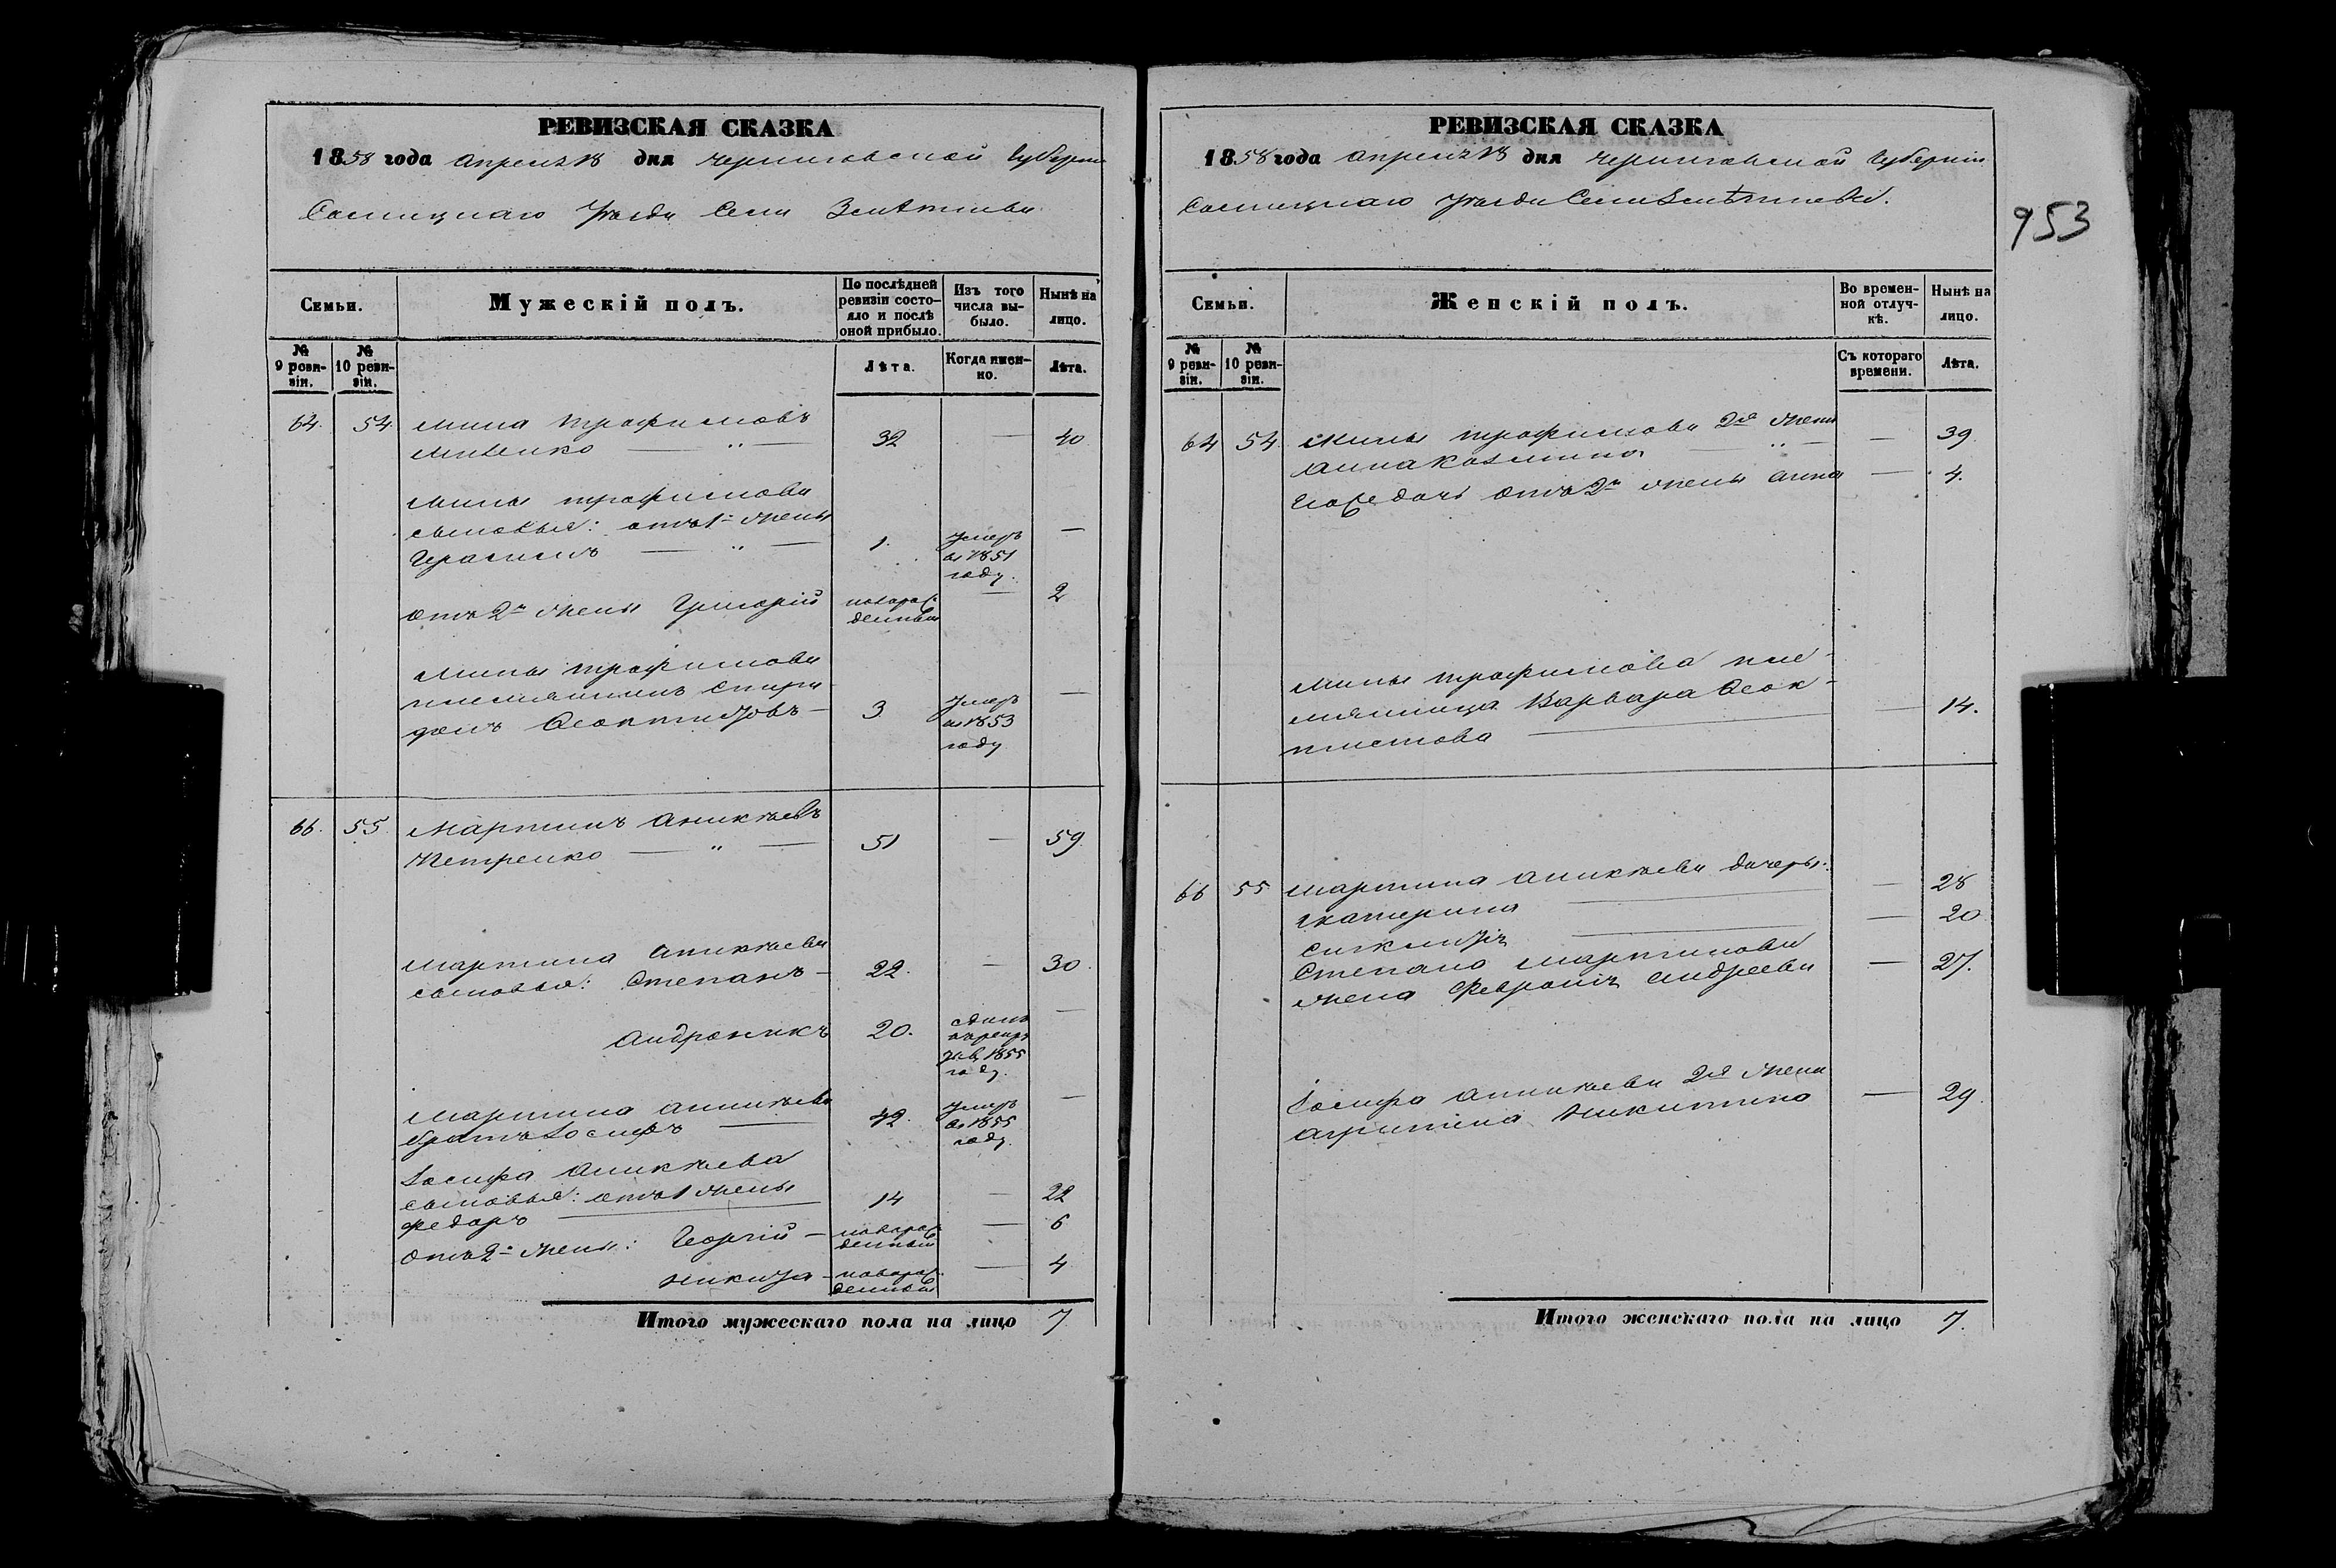 РЕВИЗСКАЯ СКАЗКА
1858 года апреля 18 дня Черниговской Губерніи
Сосницкаго Уезда Села
Семьи.
Мужескій полъ.
По послѣдней ревизіи состояло и послѣ оной прибыло.
Изъ того числа выбыло.
Нынѣ на лицо.
№ 9 ревизіи.
№ 10 ревизіи.
Лѣта.
Когда именно.
Лѣта.
64. 54. Мина Трофимовъ
Миненко — „ — 32 — 40
Мины Трофимова
сыновья: отъ 1й жены
Герасимъ — „ — 1. умеръ въ 1851 году. —
отъ 2й жены Григорій новорожденный — 2
Мины Трофимова
племянникъ Спири
донъ Феоктистовъ — 3 умеръ въ 1853 году —
66. 55. Мартинъ Аникіевъ
Петренко — „ — 51 — 59
Мартина Аникіева
сыновья: Степанъ — 22. — 30.
Андроникъ 20. 1855 году. —
Мартина Аникіева
братъ Іосифъ — 42. умеръ въ 1855 году. —
Іосифа Аникіева
сыновья: отъ 1 жены
Федоръ — 14 — 22
отъ 2й жены: Георгій — новорожденный — 6
Никита — новорожденный — 4
Итого мужескаго пола на лицо 7
РЕВИЗСКАЯ СКАЗКА
1858 года апреля 18 дня Черниговской Губерніи
Сосницкаго Уезда Села
953
Семьи.
Женскій полъ.
Во временной отлучкѣ.
Нынѣ на лицо.
№ 9 ревизіи.
№ 10 ревизіи.
Съ котораго времени.
Лѣта.
64 54. Мины Трофимова 2я жена
Анна Козмина — „ — — 39.
Его дочь отъ 2й жены Анна — 4.
Мины Трофимова пле-
мянница Варвара Феок-
тистова — — 14.
66 55 Мартина Аникіева дочери:
Екатерина — — 28
— — 20
Степана Мартинова
жена Февронія Андреева — 27.
Іосифа Аникіева 2я жена
Агрипина Никитина — 29
Итого женскаго пола на лицо 7.